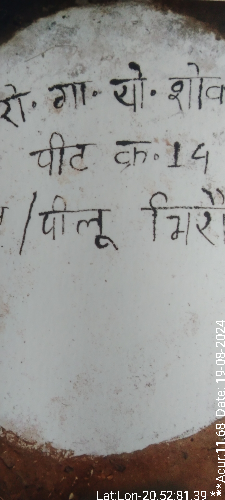 रो. गा. यो. शोव
पीट क्र. 14
/पीलू मिरी
Lat:Lon-20.52:81.39
***Acur:11.68 Date: 19-08-2024